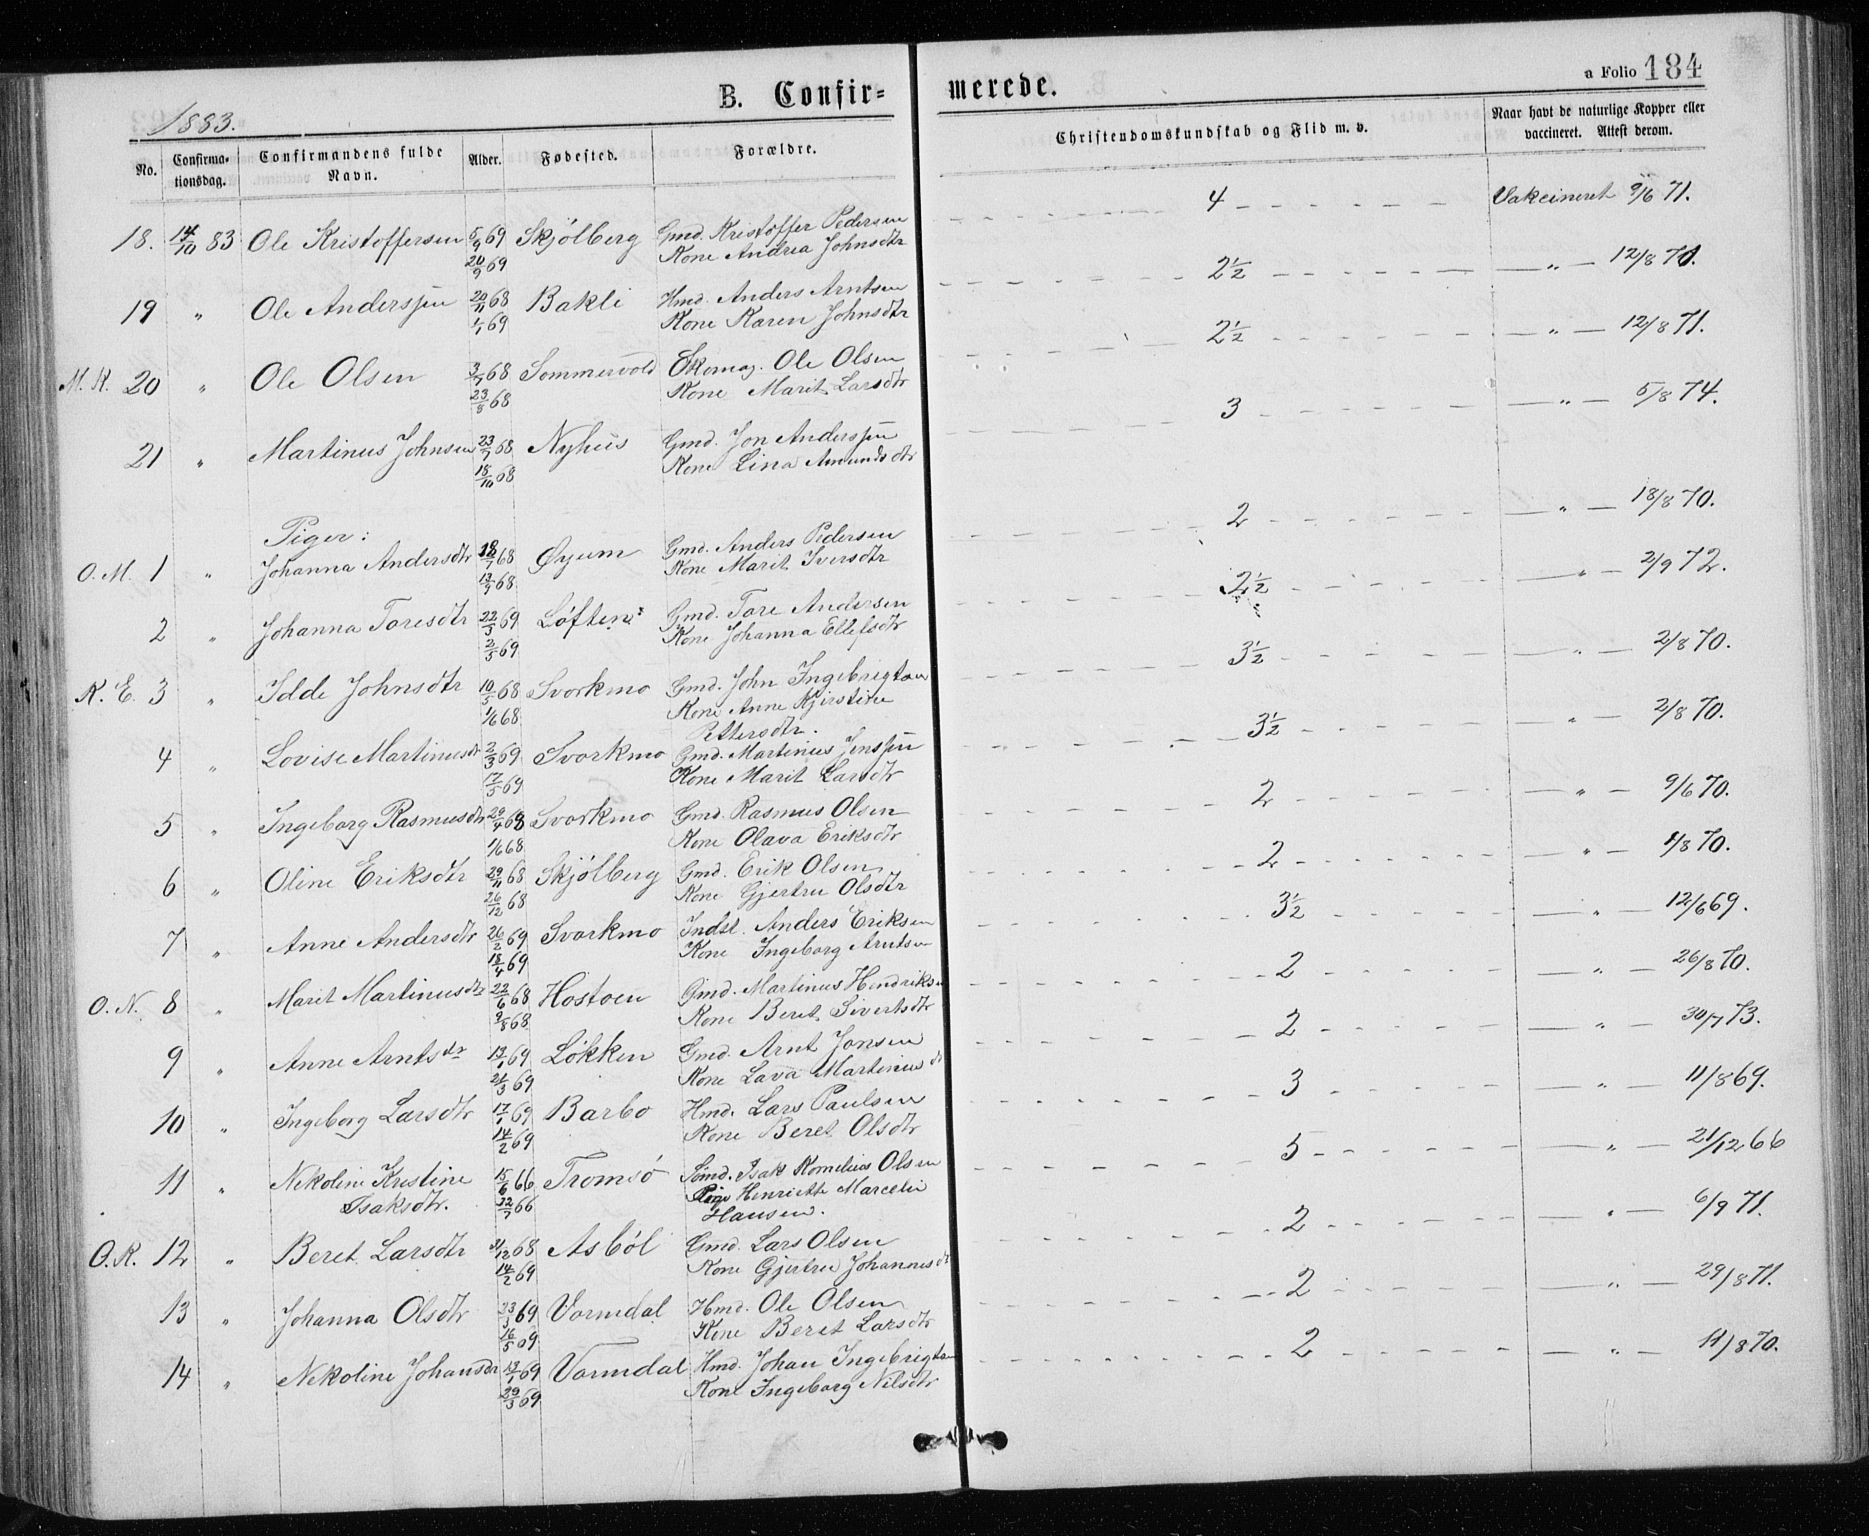 1883.
B. Confir=
merede.
a Folio 184
No.
Confirma-
tionsdag.
Confirmandens fulde
Navn.
Alder.
Fødested.
Forældre.
Christendomskundskab og Flid m. v.
Naar havt de naturlige Kopper eller
vaccineret. Attest derom.
18. 14/10 83 Ole Kristoffersen 5/9 69 Skjölberg Gmd. Kristoffer Pedersen 4 Vakcineret 9/6 71.
20/9 69 Kone Andrea Johnsdtr
19 " Ole Anderssen 20/11 68 Bakli Hmd. Anders Arntsen 2½ " 12/8 70.
1/1 69 Kone Karen Johnsdtr
M. K. 20 " Ole Olsen 3/7 68 Sommervold Skomag. Ole Olsen 2½ " 12/8 71.
23/8 68 Kone Marit Larsdtr
21 " Martinus Johnsen 23/7 68 Nyhus Gmd. Jon Anderssen 3 " 5/8 74.
18/10 68 Kone Lina Amundsdtr
Piger:
O. M. 1 " Johanna Andersdtr 18/7 68 Øyum Gmd. Anders Pedersen 2 " 18/8 70.
13/9 68 Kone Marit Iversdtr
2 " Johanna Toresdtr 22/3 69 Löften Gmd. Tore Andersen 2½ " 2/9 72.
2/5 69 Kone Johanna Ellefsdtr
K. E. 3 " Idde Johnsdtr 10/5 68 Svorkmo Gmd. John Ingebrigtsen 3½ " 2/8 70.
1/6 68 Kone Anne Kjirstine
Pettersdtr.
4 " Lovise Martinusdtr 2/3 69 Svorkmo Gmd. Martinus Jenssen 3½ " 2/8 70.
17/5 69 Kone Marit Larsdtr
5 " Ingeborg Rasmusdtr 29/4 68 Svorkmo Gmd. Rasmus Olsen 2 " 9/6 70.
1/6 68 Kone Olava Eriksdtr
6 " Oline Eriksdtr 29/11 68 Skjölberg Gmd. Erik Olsen 2 " 1/8 70.
26/12 68 Kone Gjertru Olsdtr
7 " Anne Andersdtr 26/2 69 Svorkmo Indst. Anders Eriksen 3½ " 12/6 69.
18/4 69 Kone Ingeborg Arntsen
O. N. 8 " Marit Martinusdtr 22/6 68 Hostoen Gmd. Martinus Hendriksen 2 " 26/8 70.
9/8 68 Kone Beret Sivertsdtr
9 " Anne Arntsdtr 13/1 69 Lökken Gmd. Arnt Jonsen 2 " 30/7 73.
21/3 69 Kone Lava Martinusdtr
10 " Ingeborg Larsdtr 17/1 69 Barbo Hmd. Lars Paulsen 3 " 11/8 69.
14/2 69 Kone Beret Olsdtr
11 " Nekoline Kristine 15/6 66 Tromsö Sömd. Isak Kornelius Olsen 5 " 21/12 66
Isaksdtr. 22/7 66 Pige Henriette Marcelie
Hansen.
O. K. 12 " Beret Larsdtr 31/12 68 Asböl Gmd. Lars Olsen 2 " 6/9 71.
14/2 69 Kone Gjertru Johannesdtr
13 " Johanna Olsdtr 23/3 69 Vormdal Hmd. Ole Olsen 2 " 29/8 71.
16/5 69 Kone Beret Larsdtr
14 " Nekoline Johansdtr 13/1 69 Vormdal Hmd. Johan Ingebrigtsen 2 " 11/8 70.
29/3 69 Kone Ingeborg Nilsdtr